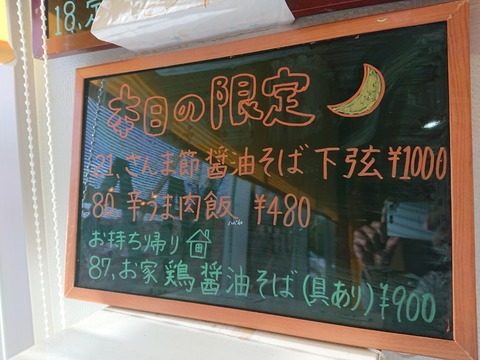 18、定
本日の限定
21、さんま節 醤油そば 下弦 ¥1000
80 辛うま肉飯 ¥480
お持ち帰り
87、お家 鶏 醤油そば (具あり) ¥900